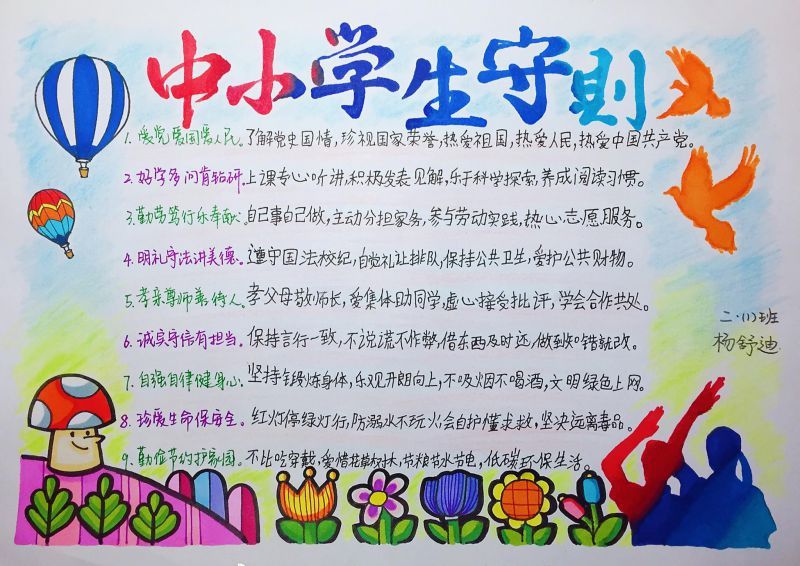 中小学生守则
1. 爱党爱国爱人民。了解党史国情,珍视国家荣誉,热爱祖国,热爱人民,热爱中国共产党。
2. 好学多问肯钻研。上课专心听讲,积极发表见解,乐于科学探索,养成阅读习惯。
3. 勤劳笃行乐奉献。自己事自己做,主动分担家务,参与劳动实践,热心志愿服务。
4. 明礼守法讲美德。遵守国法校纪,自觉礼让排队,保持公共卫生,爱护公共财物。
5. 孝亲尊师善待人。孝父母敬师长,爱集体助同学,虚心接受批评,学会合作共处。
二·(1)班
杨舒迪
6. 诚实守信有担当。保持言行一致,不说谎不作弊,借东西及时还,做到知错就改。
7. 自强自律健身心。坚持锻炼身体,乐观开朗向上,不吸烟不喝酒,文明绿色上网。
8. 珍爱生命保安全。红灯停绿灯行,防溺水不玩火,会自护懂求救,坚决远离毒品。
9. 勤俭节约护家园。不比吃穿戴,爱惜花草树木,节粮节水节电,低碳环保生活。